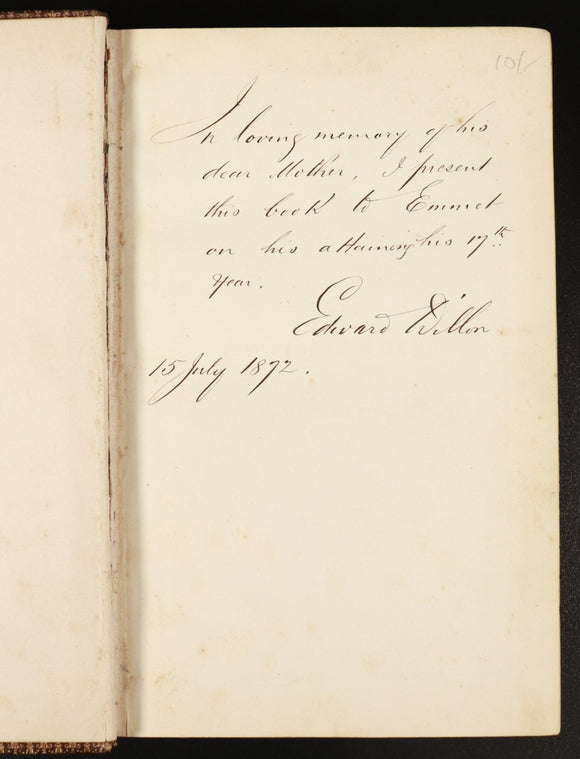 10/
In loving memory of his
dear Mother, I present
this book to Emmet
on his attaining his 17th
year.
Edward Dillon
15 July 1872.